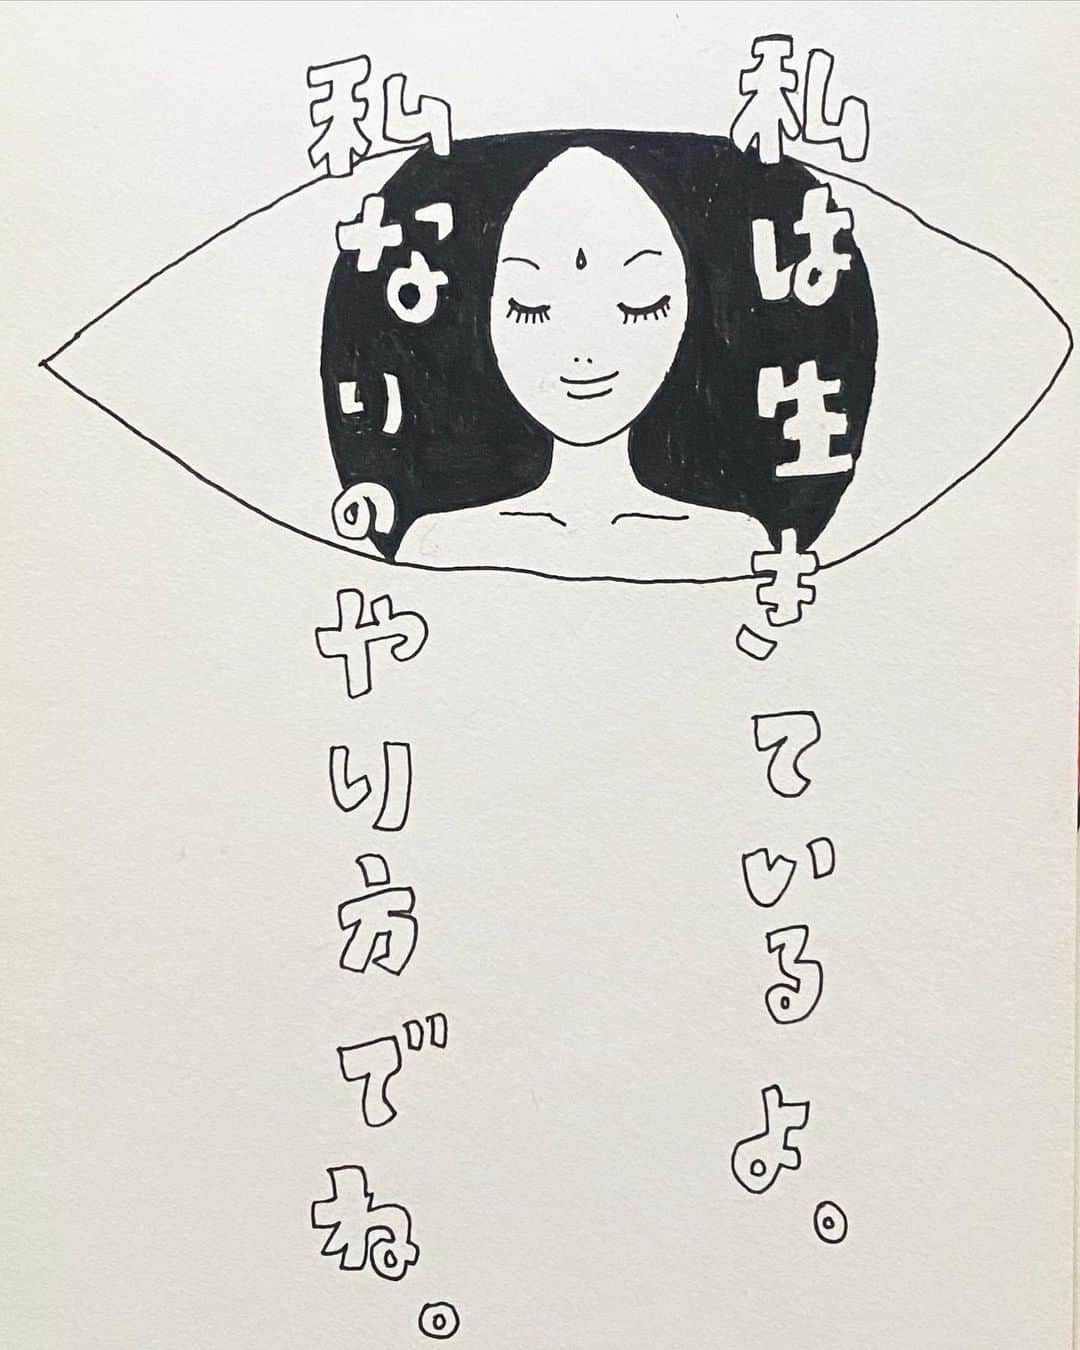 私は生きているよ。
私なりのやり方でね。